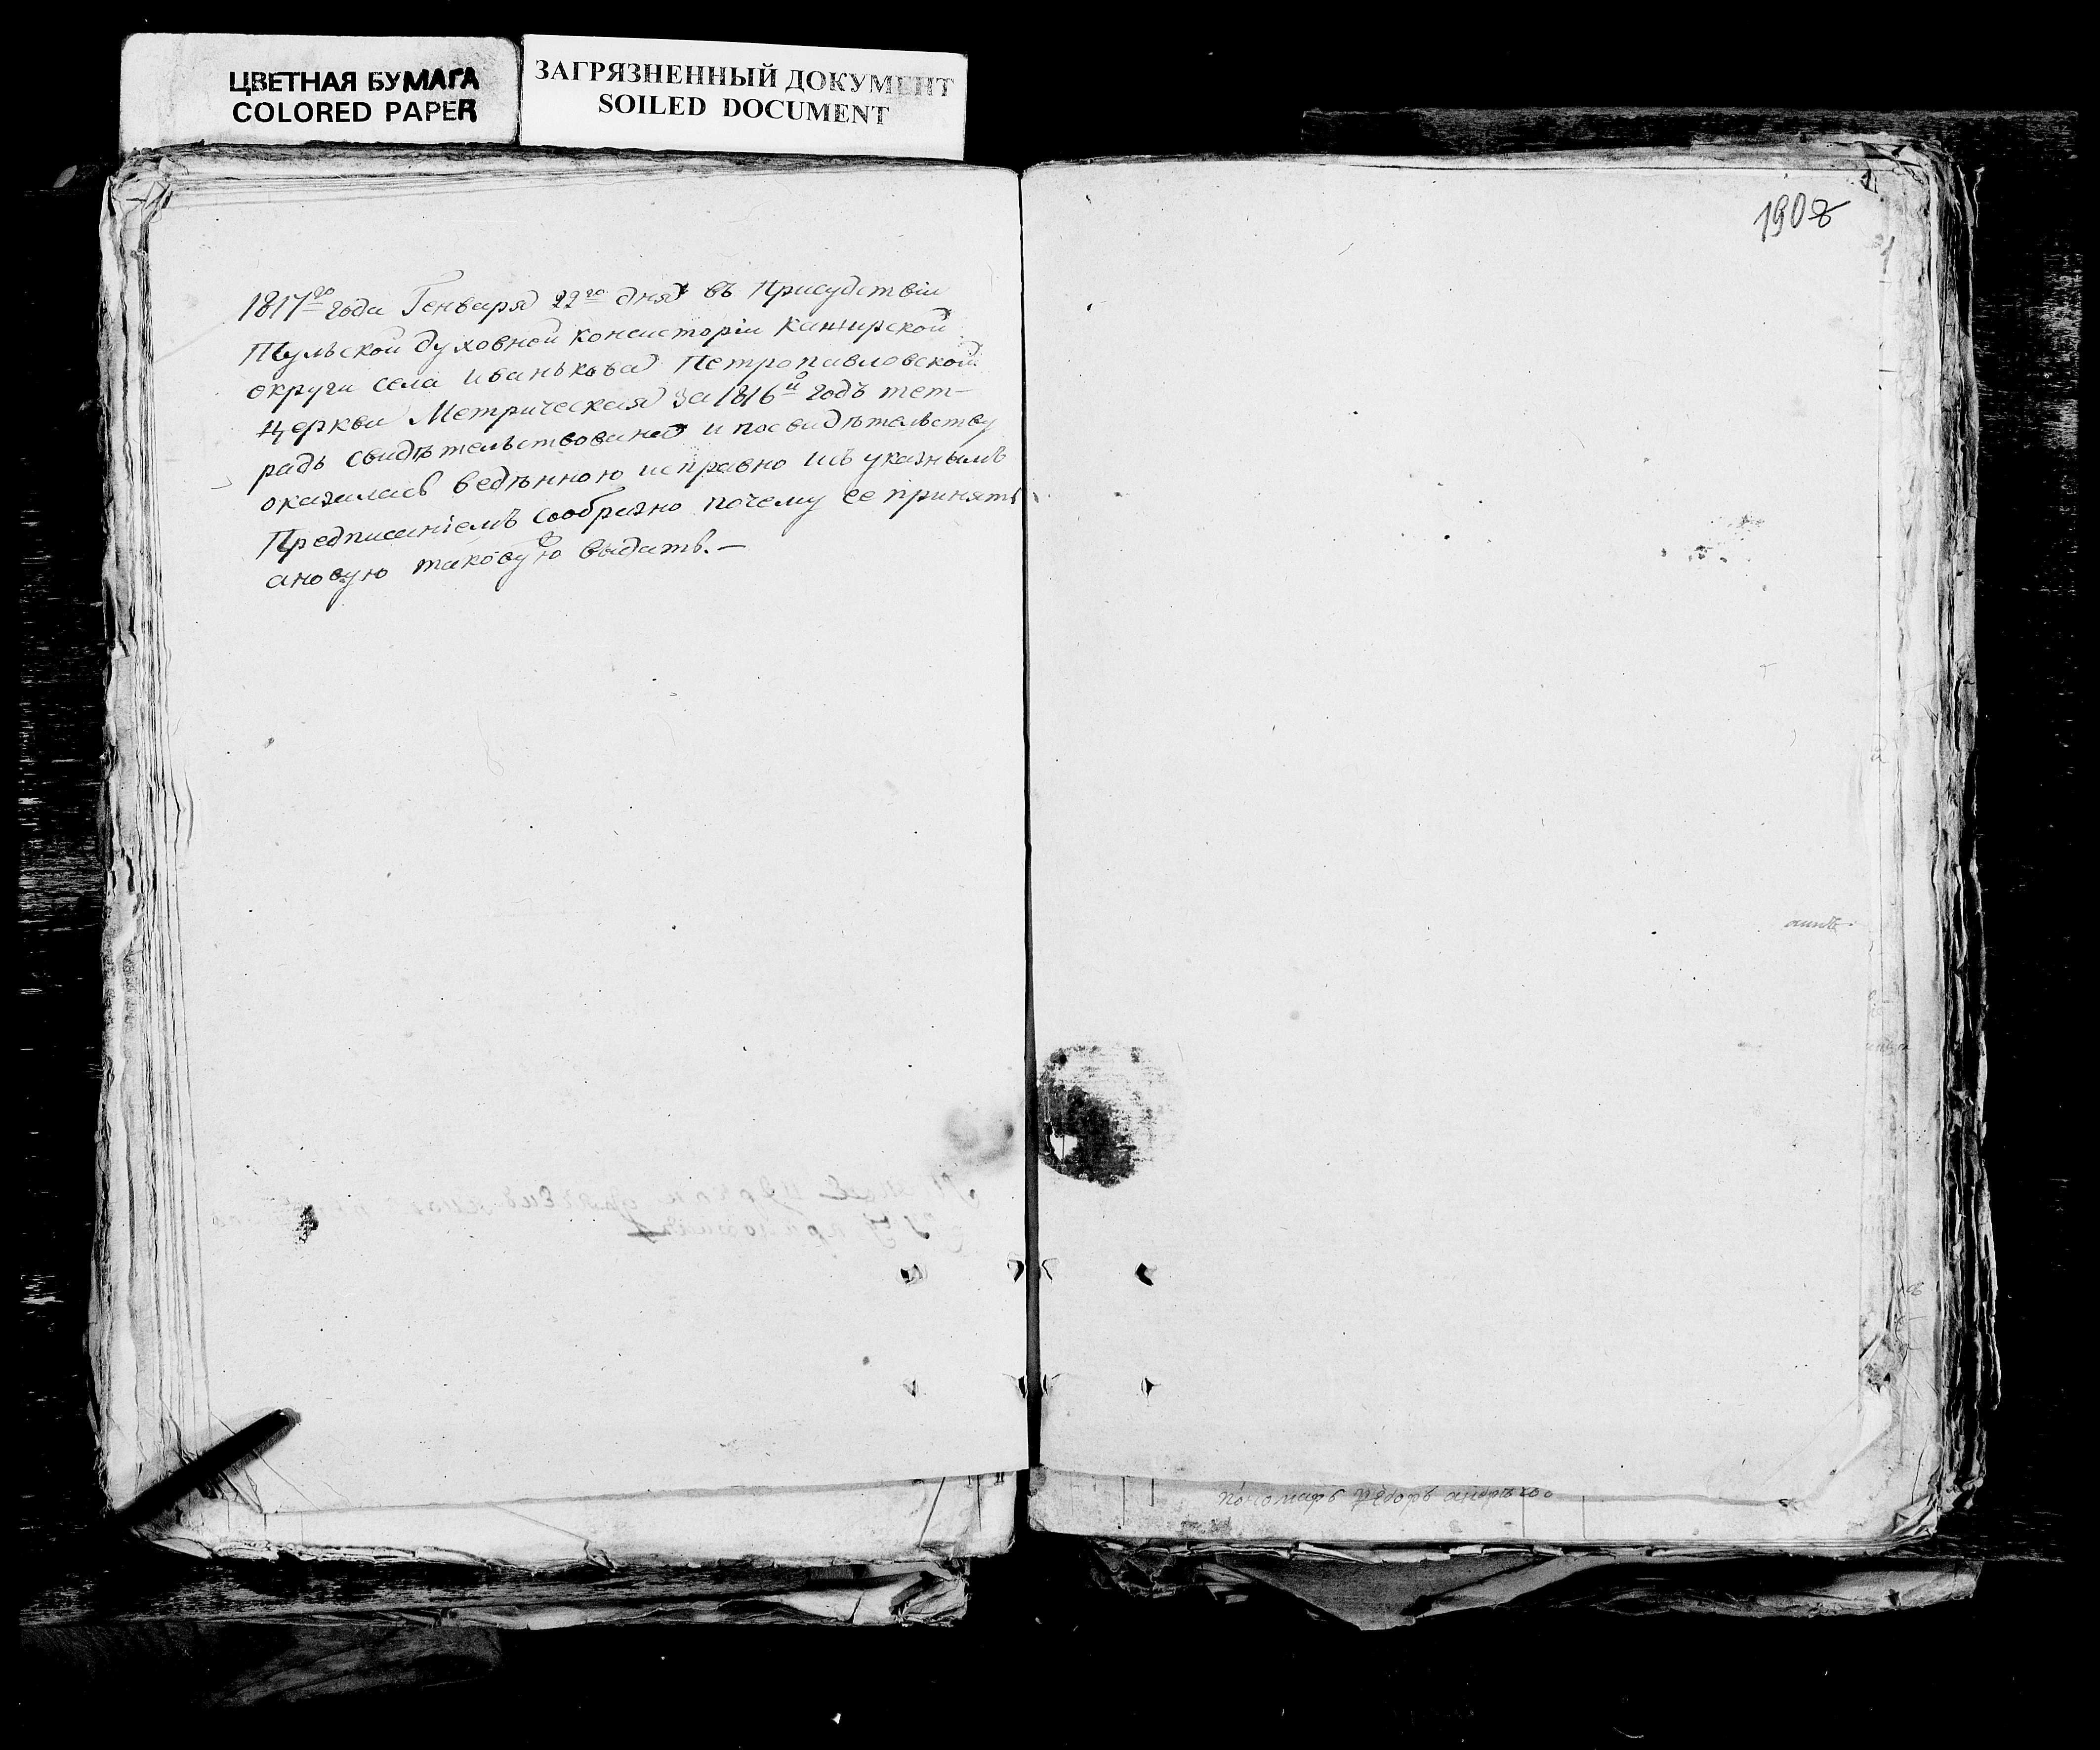 ЦВЕТНАЯ БУМАГА
COLORED PAPER
ЗАГРЯЗНЕННЫЙ ДОКУМЕНТ
SOILED DOCUMENT
1908
1817го года Генваря 22го дня въ Присудствіи
Тульской духовной консисторіи каширской
округи села иванькова Петропавловской
церкви Метрическая за 1816й годъ тет-
радь свидѣтельствована и посвидѣтельству
оказалась ведѣнною исправно исъ указнымъ
Предписаніемъ сообразно почему ее принять
ановую таковую выдать.—
пономарь Ѳедоръ